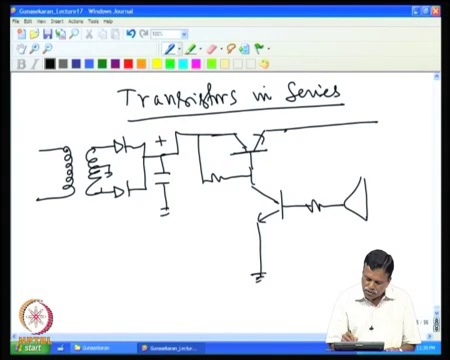 Gunasekaran_Lecture17 - Windows Journal
File Edit View Insert Actions Tools Help
100%
B I
Transistors in Series
+
NPTEL
start
Gunasekaran
Gunasekaran_Lec...